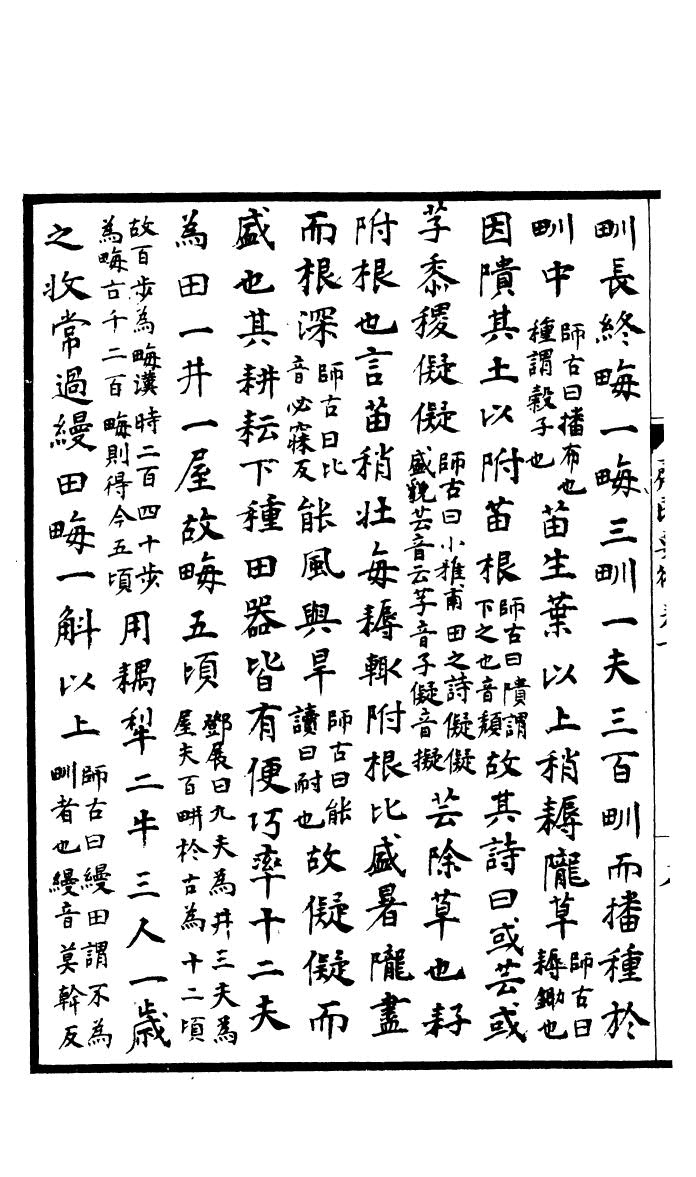 甽長終畮一畮三甽一夫三百甽而播種於
甽中師古曰播布也種謂穀子也苗生葉以上稍耨隴草師古曰耨鋤也
因隤其土以附苗根師古曰隤謂下之也音頽故其詩曰或芸或
芓黍稷儗儗師古曰小雅甫田之詩儗儗盛貌芸音云芓音子儗音擬芸除草也耔
附根也言苗稍壯每耨輙附根比盛暑隴盡
而根深師古曰比音必寐反能風與旱師古曰能讀曰耐也故儗儗而
盛也其耕耘下種田器皆有便巧率十二夫
為田一井一屋故畮五頃鄧展曰九夫為井三夫為屋夫百畊於古為十二頃
故百步為畮漢時二百四十步為畮古千二百畮則得今五頃用耦犂二牛三人一歲
之收常過縵田畮一斛以上師古曰縵田謂不為甽者也縵音莫幹反